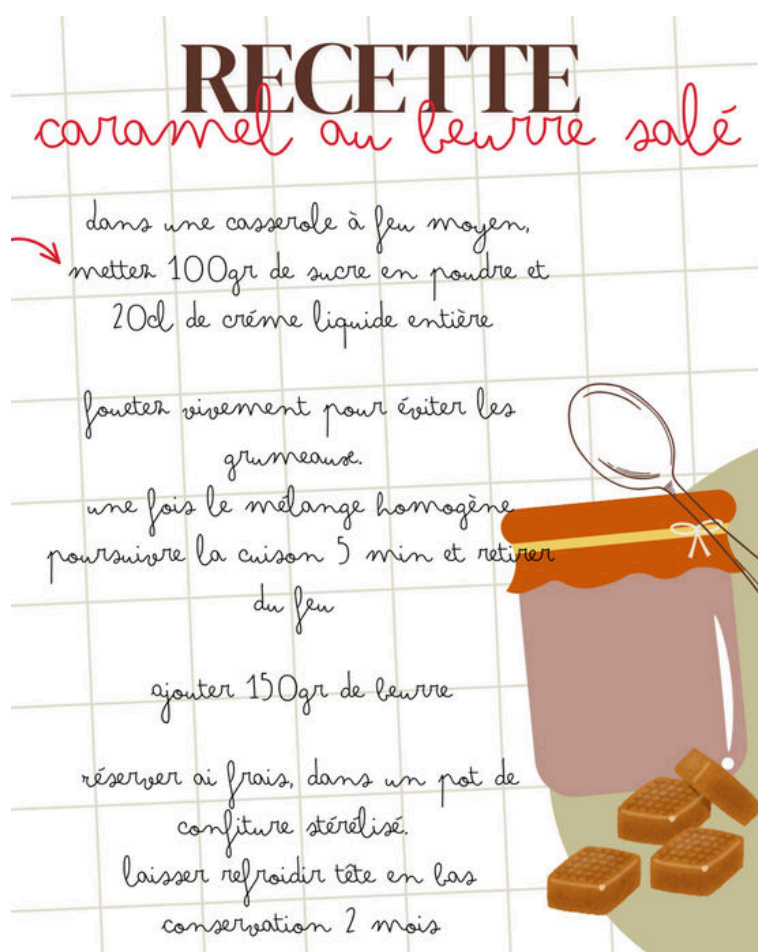 RECETTE
caramel au beurre salé
dans une casserole à feu moyen,
mettez 100gr de sucre en poudre et
20cl de créme liquide entière
fouetez vivement pour éviter les
grumeause.
une fois le mélange homogène
poursuivre la cuison 5 min et retirer
du feu
ajouter 150gr de beurre
réserver ai frais, dans un pot de
confiture stérélisé.
laisser refroidir tête en bas
conservation 2 mois